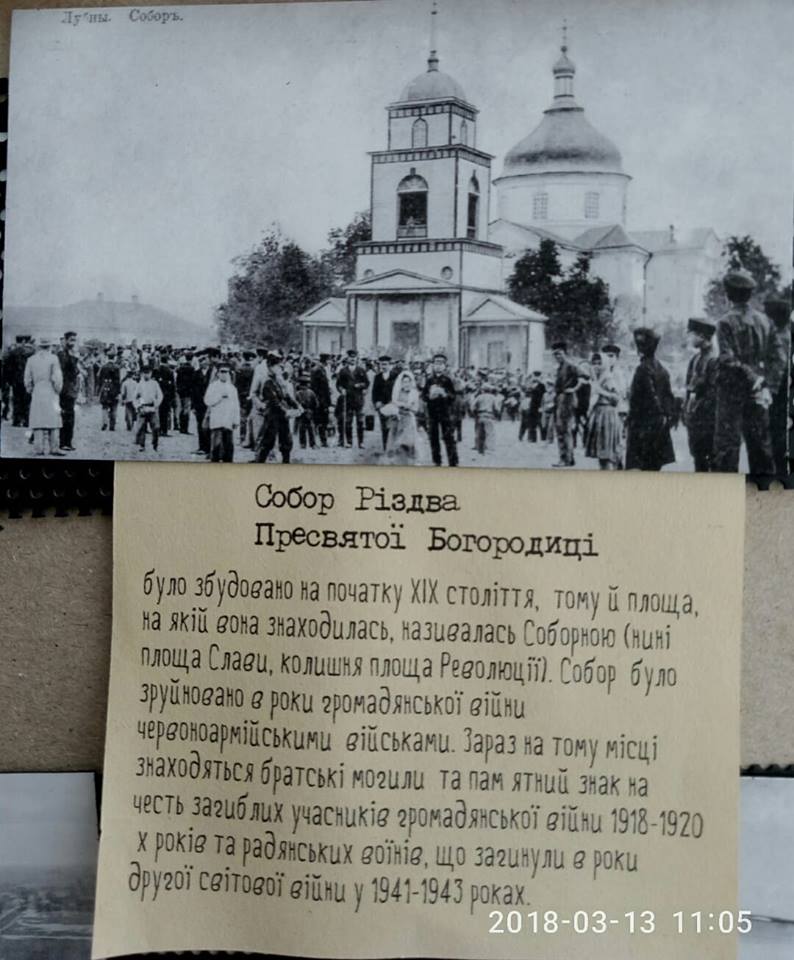 Лубны. Соборъ.
Собор Різдва
Пресвятої Богородиці
було збудовано на початку XIX століття, тому й площа,
на якій вона знаходилась, називалась Соборною (нині
площа Слави, колишня площа Революції). Собор було
зруйновано в роки громадянської війни
червоноармійськими військами. Зараз на тому місці
знаходяться братські могили та пам ятний знак на
честь загиблих учасників громадянської війни 1918-1920
х років та радянських воїнів, що загинули в роки
другої світової війни у 1941-1943 роках.
2018-03-13 11:05